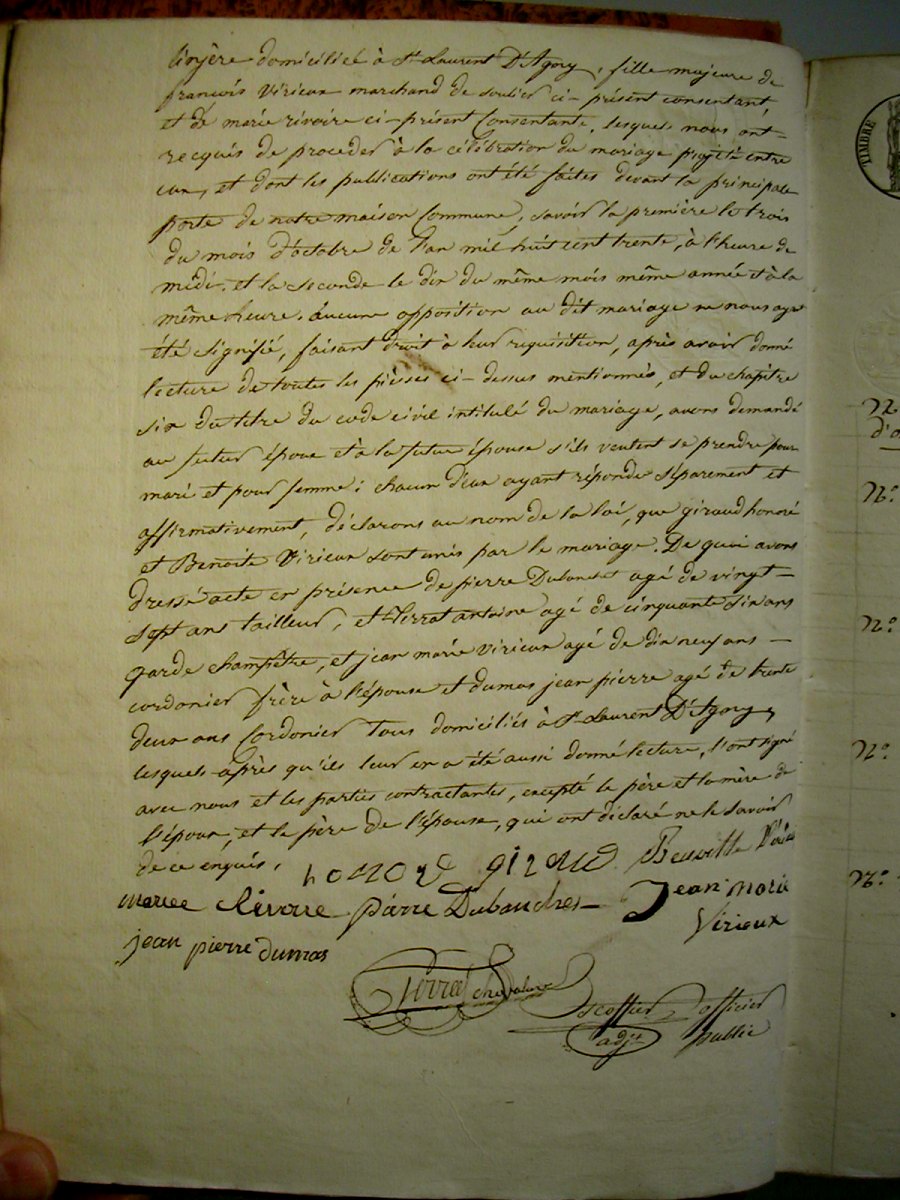 lingère domiciliée à St Laurent D'Agny, fille majeure de
françois Virieux marchand de soulier ci-présent consentant,
et de marie rivoire ci-présent Consentante, lesquels nous ont
recquis de proceder à la célébration du mariage projeté entre
eux, et dont les publications ont été faites devant la principale
porte de notre maison Commune, savoir la première le trois
du mois d'octobre de l'an mil huit cent trente, à l'heure de
midi, et la seconde le dix du même mois même année et à la
même heure. aucune opposition au dit mariage ne nous ayant
été signifié, faisant droit à leur requisition, après avoir donné
lecture de toutes les pièsses ci-dessus mentionnés, et du chapitre
six du titre du code civil intitulé du mariage, avons demandé
au futur époux et à la future épouse s'ils veulent se prendre pour
mari et pour femme; chacun d'eux ayant réponde séparement et
affirmativement, déclarons au nom de la loi, que giraud honoré
et Benoite Virieux sont unis par le mariage. De quoi avons
dressé acte en présence de pierre Dubanchet agé de vingt-
sept ans tailleur, et Terrat antoine agé de cinquante six ans
garde champêtre, et jean marie virieux agé de dix neuf ans -
cordonier frère à l'épouse et dumas jean pierre agé de trente
deux ans Cordonier Tous domiciliés à St Laurent D'Agny,
lesquels après qu'ils leur en a été aussi donné lecture, l'ont signé
avec nous et les parties contractantes, excepté le père et la mère de
l'époux, et le père de l'épouse, qui ont déclaré ne le savoir
de ce enquis.
honoré giraud Benoitte
mariee Rivoire pierre Dubanchet Jean Marie
Virieux
jean pierre dumas
Terrat chevalier Escoffier officier
adjt public
TIMBRE
N
d'o
N.º
N.º
N.º
N.º